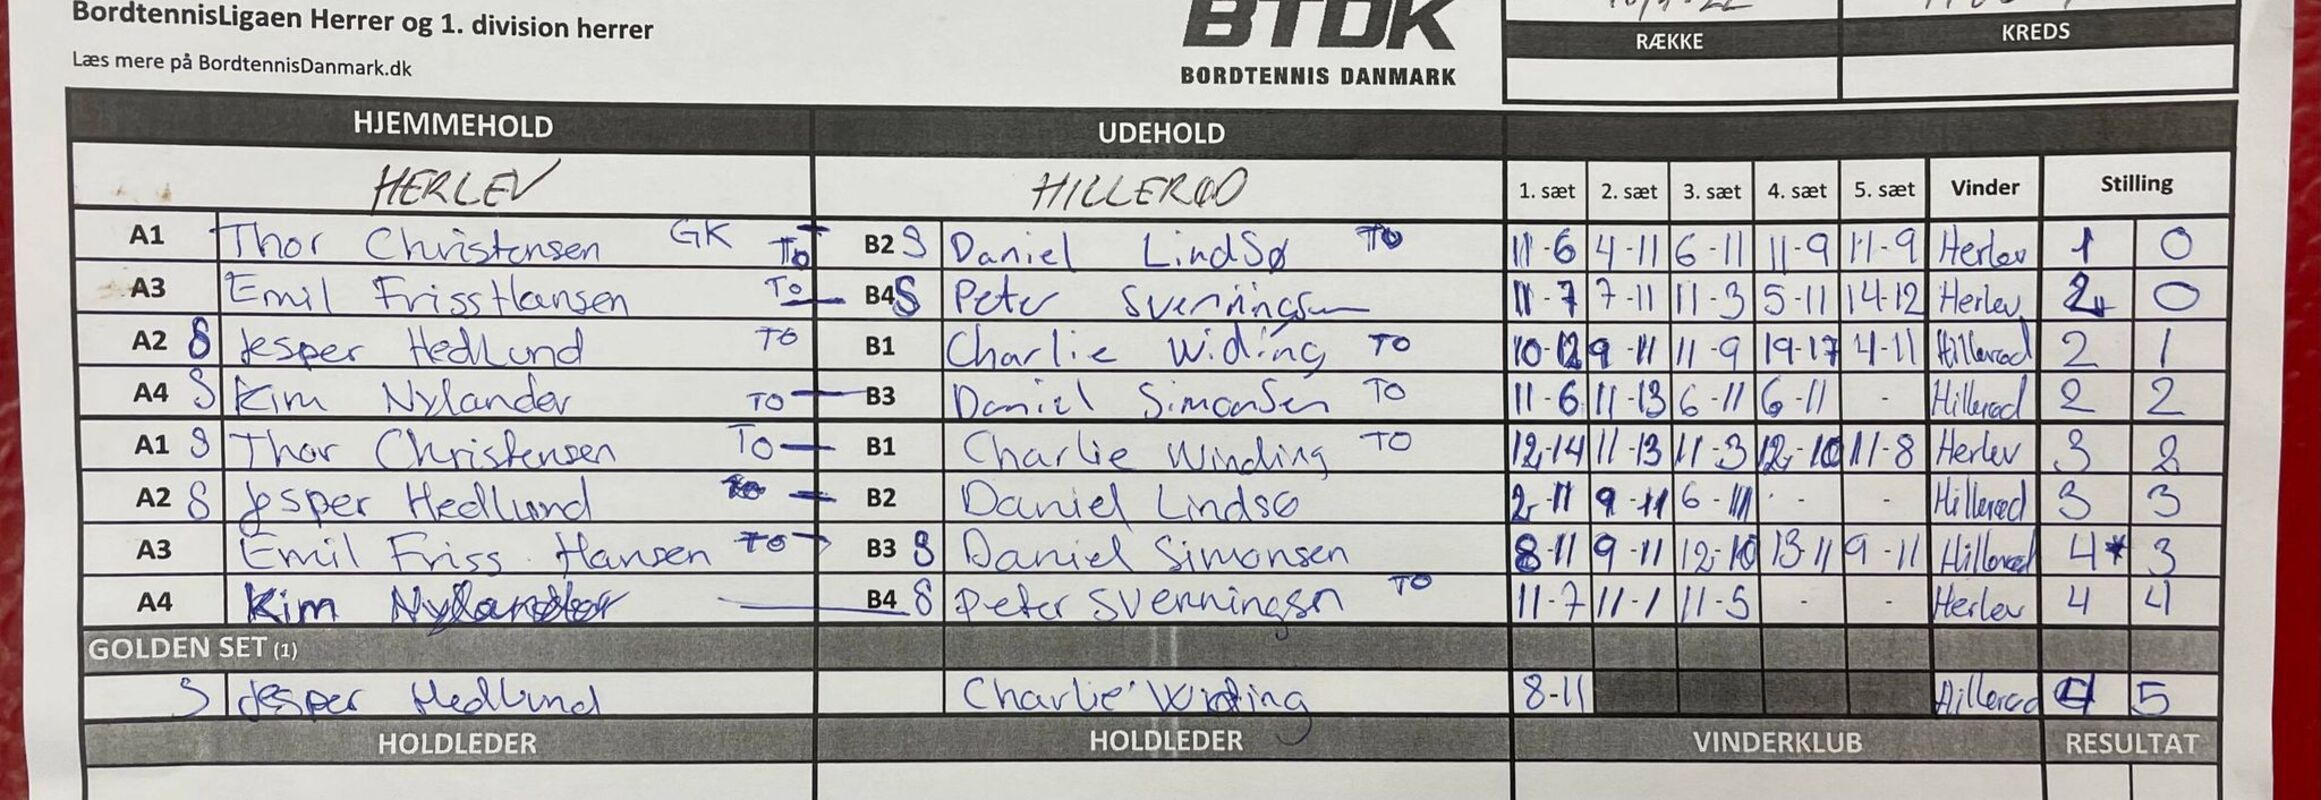 BordtennisLigaen Herrer og 1. division herrer
Læs mere på BordtennisDanmark.dk
BTDK
BORDTENNIS DANMARK
RÆKKE KREDS
HJEMMEHOLD UDEHOLD
HERLEV HILLERØD 1. sæt 2. sæt 3. sæt 4. sæt 5. sæt Vinder Stilling
A1 Thor Christensen GK To B2 S Daniel LindSø TO 11-6 4-11 6-11 11-9 11-9 Herlev 1 0
A3 Emil Friss Hansen To B4 S Peter Svenningsen 11-7 7-11 11-3 5-11 14-12 Herlev 2 0
A2 S Jesper Hedlund TO B1 Charlie Widing TO 10-12 9-11 11-9 19-17 4-11 Hillerød 2 1
A4 S Kim Nylander TO B3 Daniel Simonsen TO 11-6 11-13 6-11 6-11 - Hillerød 2 2
A1 S Thor Christensen To B1 Charlie Winding TO 12-14 11-13 11-3 12-10 11-8 Herlev 3 2
A2 S Jesper Hedlund To B2 Daniel Lindsø 2-11 9-11 6-11 - - Hillerød 3 3
A3 Emil Friss Hansen TO B3 S Daniel Simonsen 8-11 9-11 12-10 13-11 9-11 Hillerød 4* 3
A4 Kim Nylander B4 S Peter Svenningsn TO 11-7 11-1 11-5 - - Herlev 4 4
GOLDEN SET (1)
S Jesper Hedlund Charlie Winding 8-11 Hillerød 4 5
HOLDLEDER HOLDLEDER VINDERKLUB RESULTAT